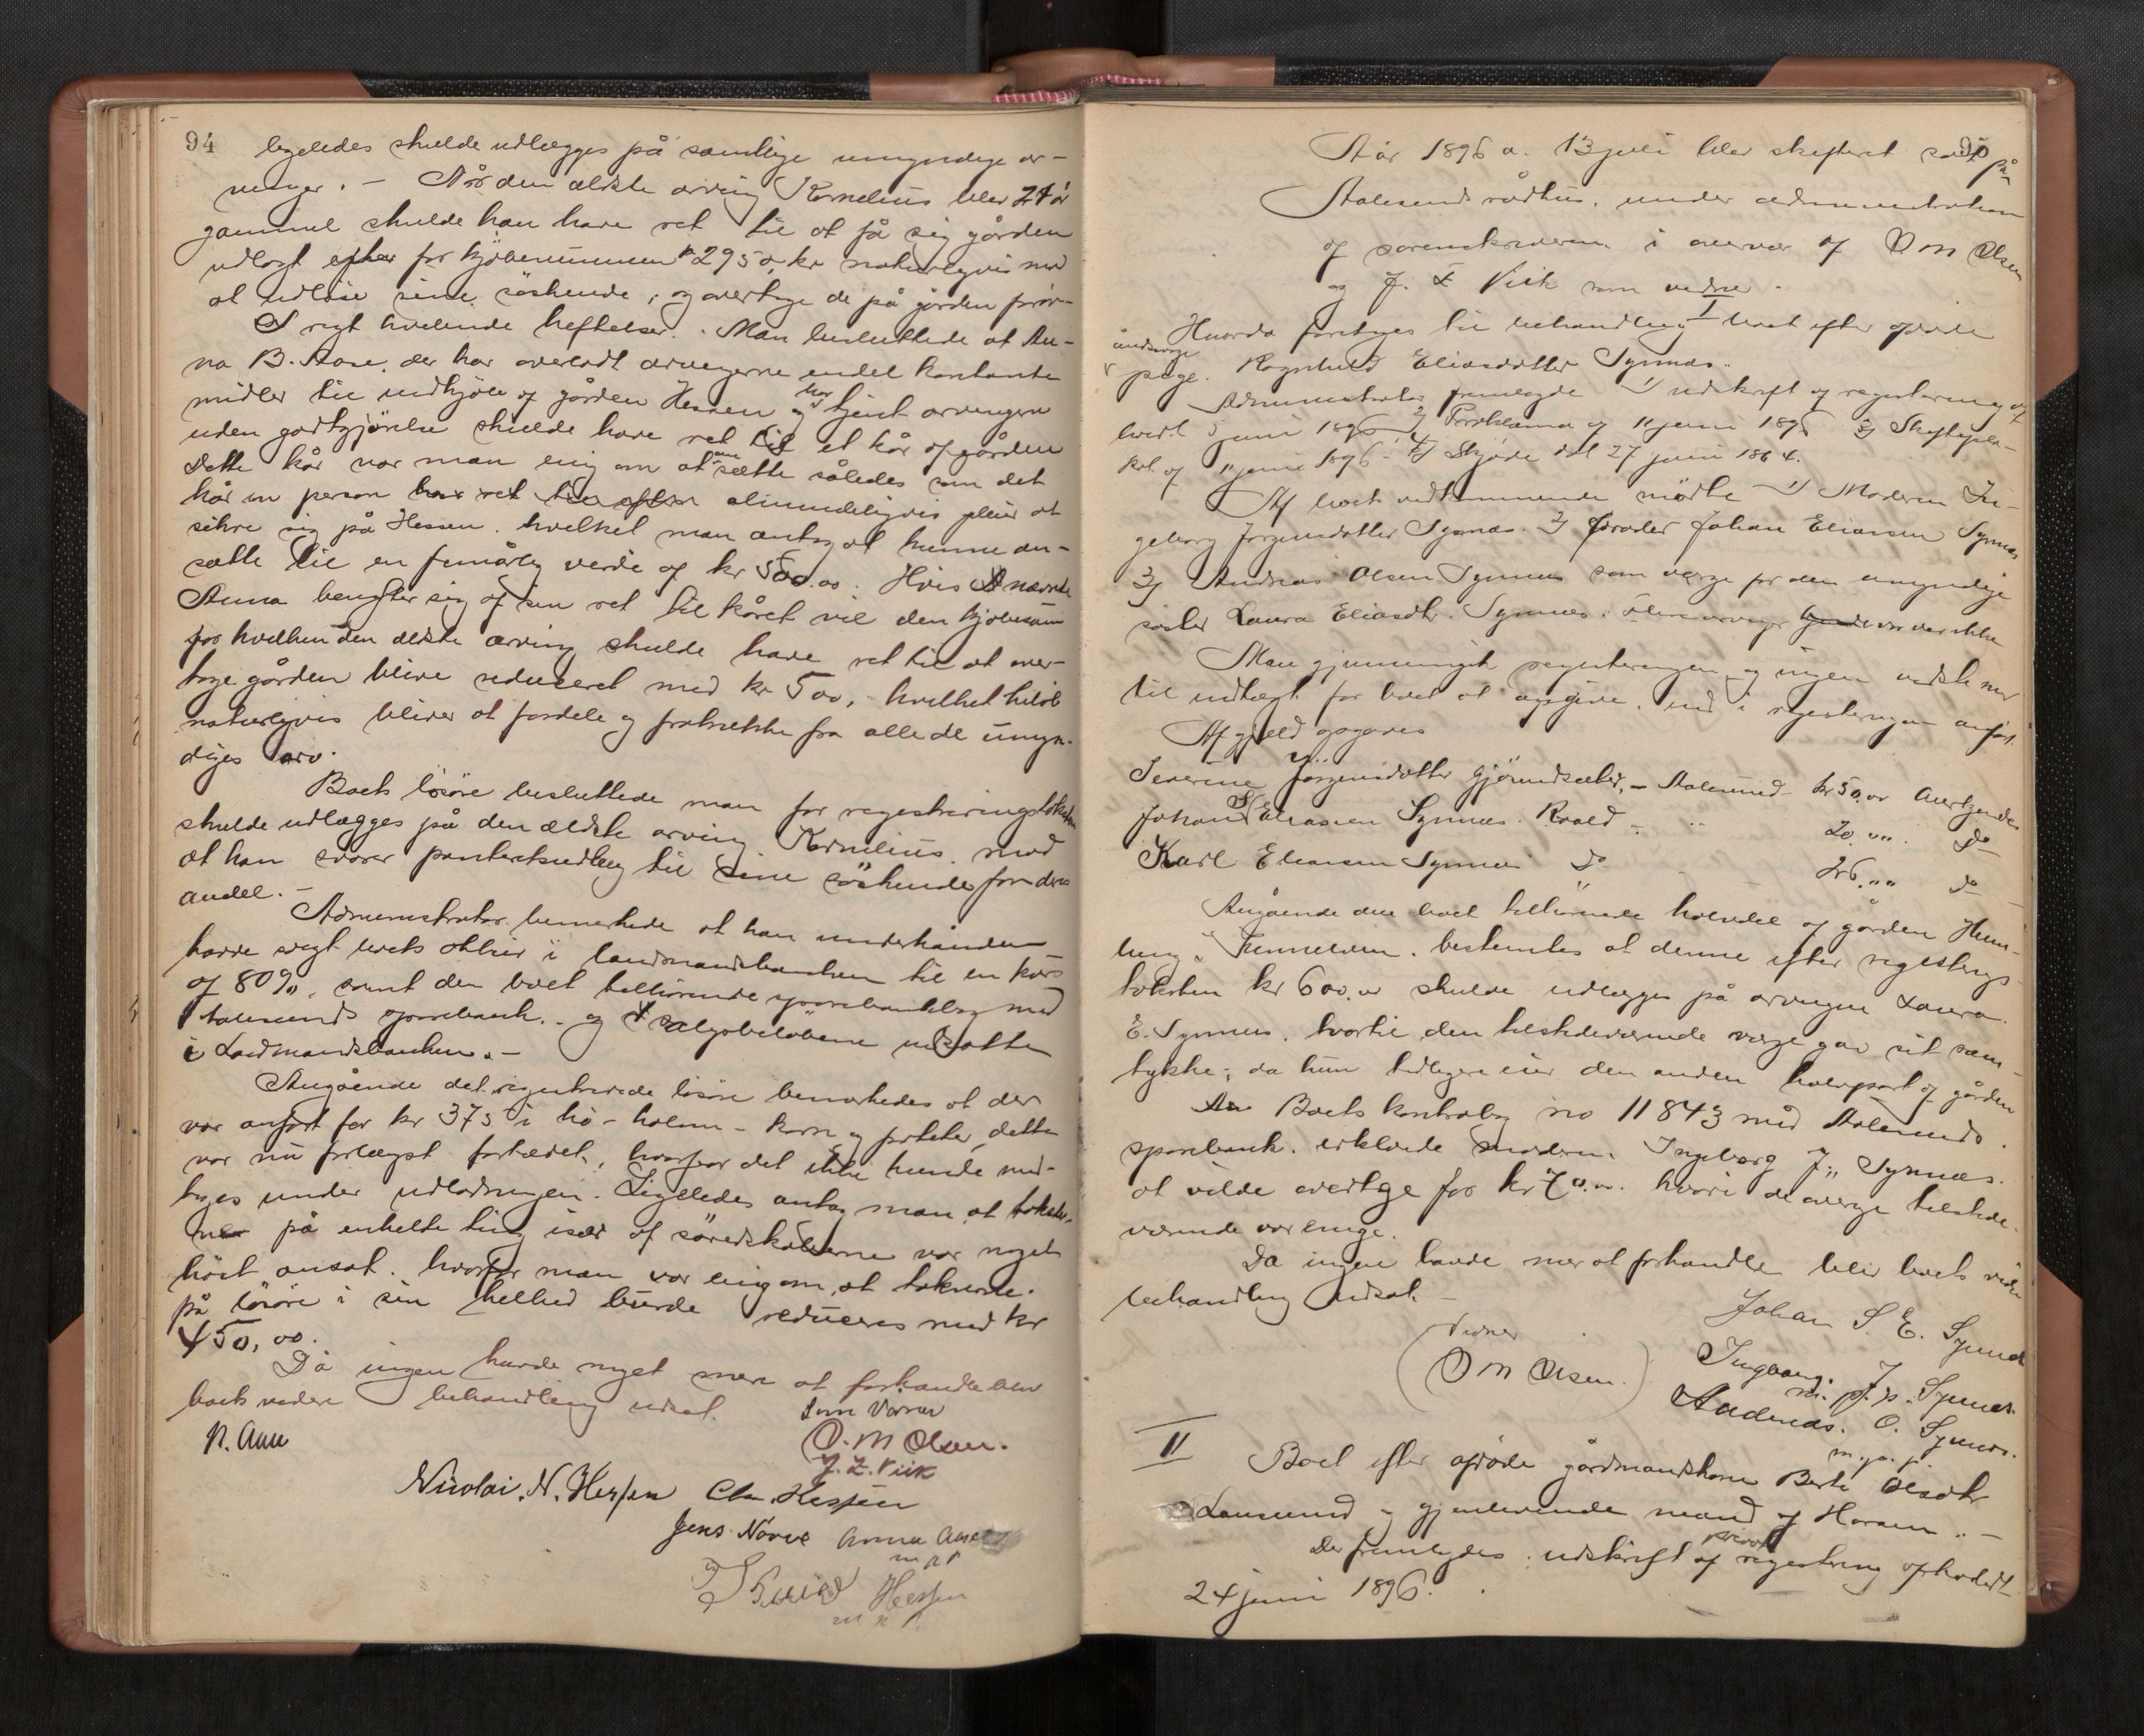 94
ligeledes skulde udlægges på samtlige umyndige ar-
vinger. - Når den ældste arving Kornelius blev 21 år
gammel skulde han have ret til at få sig gården
udlagt efter for kjøbesummen kr 2950, kr naturligvis mod
at udløse sine søskende, og overtage de på gården
hvilende heftelser. Man besluttede at An-
na B. Aase, der har overladt arvingerne endel kontante
midler til indkjøb af gården Hessen og har tjent arvingerne
uden godtgjørelse skulde have ret til et kår af gården
Dette kår var man enig om at ansætte således som det
kår en person har ret til efter alimindeligvis pleier at
sikre sig på Hessen. hvilket man antog at kunne an-
sætte til en femårlig verdi af kr 500.00. Hvis nævnte
Anna benytter sig af sin ret til kåret vil den kjøbesum
for hvilken den ældste arving skulde have ret til at over-
tage gården blive reduceret med kr 500, - hvilket beløb
naturligvis bliver at fordele og fratrække fra alle de umyn-
diges arv.
Boets løsøre besluttede man for registreringstaksten
skulde udlægges på den ældste arving Kornelius. mod
at han svarer panteretsudlæg til sine søskende for deres
andel. -
Administrator bemerkede at han underhånden
havde solgt boets aktier i landmandsbanken til en kurs
af 80%, samt den boet tilhørende sparebankbog med
Aalesunds sparebank. - og salgsbeløbene indsatte
i Landmandsbanken. -
Angående det registrerede løsøre bemerkedes at der
var anført for kr 375 i hø - halm - korn og poteter, dette
var nu forlængst fortæret, hvorfor det ikke kunde med-
tages under udlodningen. Ligeledes antog man at takster-
ne på enkelte ting især af søredskaberne var noget
høit ansat. hvorfor man var enig om, at taksterne
på løsøre i sin helhed burde reduceres med kr
450,00.
Da ingen havde noget mere at forhandle blev
boets videre behandling udsat.
Som Vidner
N. Aase
O. M Olsen.
J. Z. Vik
Nicolai. N. Hessen Chr. Hessen
Jens Nørve Anna Aase
m p p
Hessen
m p p.
95
Aår 1896 d. 13 juli blev skifteret sat på
Aalesunds rådhus, under administration
af sorenskriveren i overvær af O M Olsen
og J. Z Vik som vidne.
I
Hvorda foretoges til behandling boet efter afdøde
pige. Ragnhild Eliasdatter Synnæs.
Administrator fremlagde 1) udskrift af registrering af
boet juni 1896 2) Proklama af 11 juni 1896 3) Skifteproto-
kol af 11 juni 1896 - 4) Skjøde dat 27 juni 1864.
Af boet vedkommende mødte 1) Moderen In-
geborg Jørgensdatter Synnæs. 2) broder Johan Eliassen Synnæs
3) Andreas Olsen Synnæs som verge for den umyndige
søster Laura Eliasdtr. Synnæs. Flere arvinger var der ikke
Man gjennemgik registreringen og ingen vidste mer
til indtægt for boet at opgive. end i registeringen anført.
Af gjeld opgaves
Severine Jørgensdatter Gjørundsæter, - Aalesund kr 50.00 Anerkjendes
Johan S Eliassen Synnæs. Roald - " 20. "" . do
Karl Eliassen Synnæs do - 26. "" do
Angående den boet tilhørende halvdel af gården
bestemtes at denne efter registrerings-
taksten kr 600.00 skulde udlægges på arvingen Laura
E. Synnæs. hvortil den tilstedeværende verge gav sit sam-
tykke; da hun tidligere eier den anden halvpart af gården
Boets kontrabog no 11843 med Aalesunds.
sparebank. erklærede moderen. Ingeborg J. Synnæs.
at vilde overtage for kr 70.00. hvori de øvrige tilstede-
værende var enige.
Da ingen havde mer at forhandle blev boets videre
behandling udsat. -
Vidner
O M Olsen.
Johan S. E. Synnæs
Ingeborg. J. Synnæs.
m. p. p.
Andreas. O. Synnæs.
m. p. p.
II Boet efter afdøde gårdmandskone Berte Olsdtr
Longsund og gjenlevende mand af Haram. -
Der fremlagdes: udskrift af privat registering afholdt
24 juni 1896.